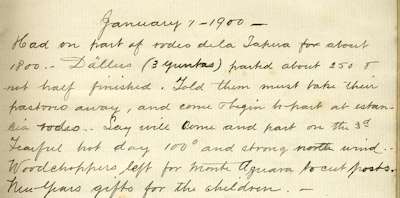 January 1 - 1900 -
Had on part of rodeo de la Tapera for about
1800. - Dállus (3 yuntas) parted about 250 &
not half finished. Told them must take their
pastores away, and come & begin to part at estan-
cia rodeo. - Say will come and part on the 3d
Fearful hot day 100° and strong north wind. -
Woodchoppers left for Monte Aguara to cut posts.
New Years gifts for the children. -